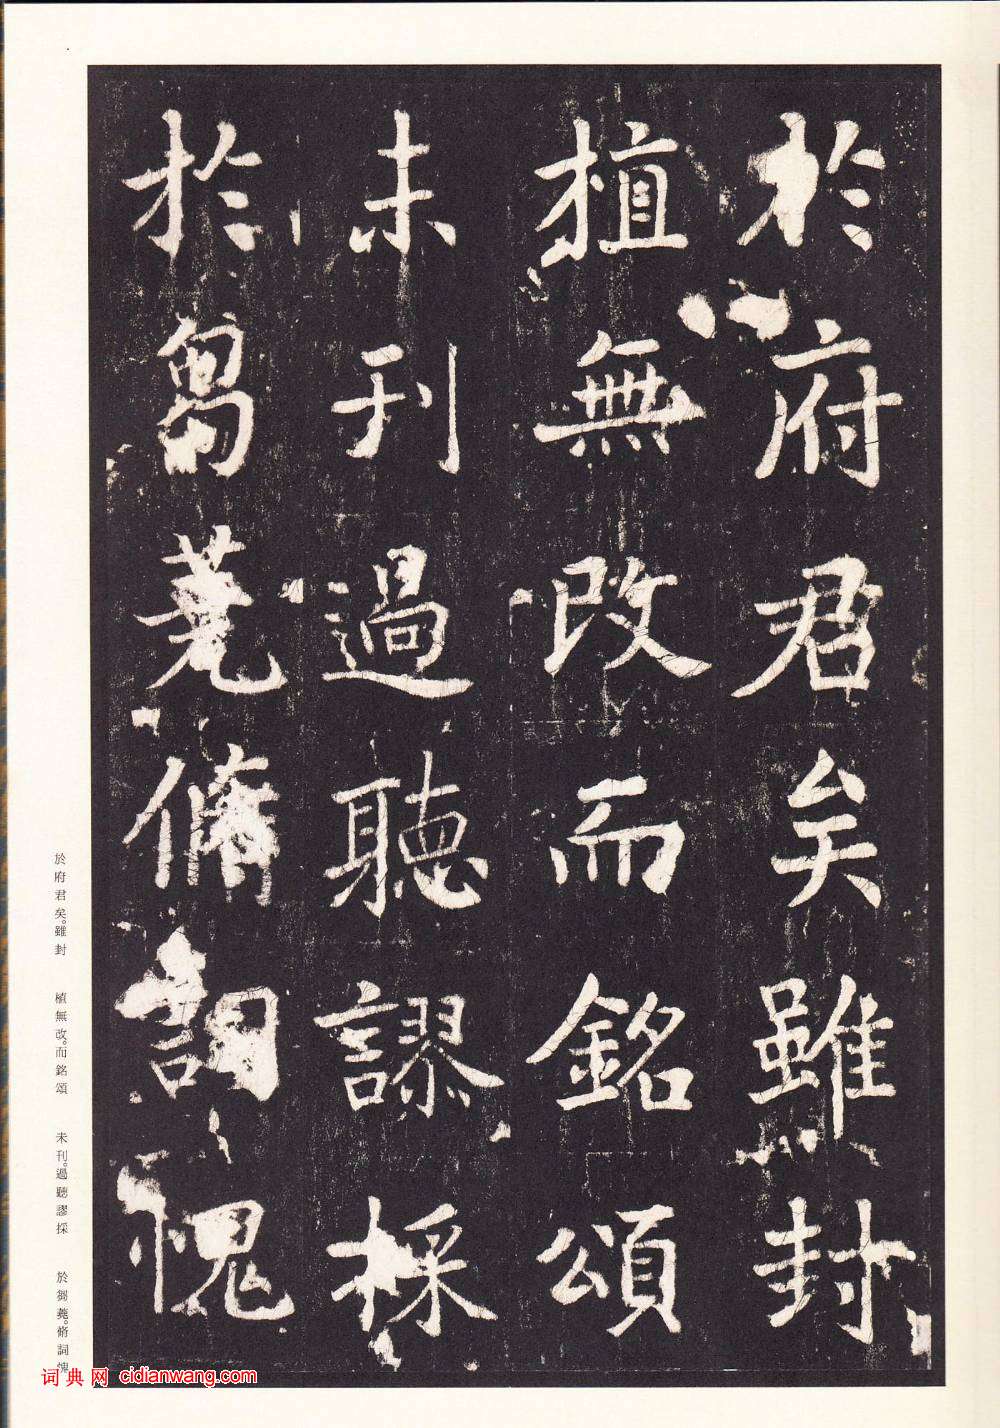 於府君矣雖封
植無改而銘頌
未刊過聽謬採
於芻蕘脩詞愧
於府君矣。雖封
植無改。而銘頌
未刊。過聽謬採
於芻蕘。脩詞愧
词典网 cidianwang.com